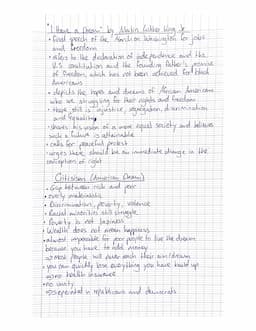 "I Have a Dream" by Martin Luther King Jr.
• final speech of the "March on Washington for jobs
and freedom"
• refers to the declaration of independence and the
U.S. constitution and the founding father's promise
of freedom, which has not been achieved for black
Americans
• depicts the hopes and dreams of African Americans
who are struggling for their rights and freedom
• there still is injustice, segregation, discrimination
and inequality
• shares his vision of a more equal society and believes
such a future is attainable
• calls for peaceful protest
• urges there should be an immediate change in the
conception of right
Criticism (American Dream)
• Gap between rich and poor
• overly materialistic
• Discrimination, poverty, violence
• Racial minorities still struggle
• Poverty is not laziness
• Wealth does not mean happiness
• almost impossible for poor people to live the dream
because you have to have money
→ most people will never reach their own dream
• you can quickly lose everything you have build up
→ no health insurance
• no unity
→ seperated in republicans and democrats